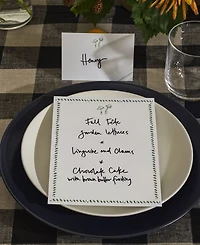 Henry
Fall Fête
garden lettuces
*
Linguine and Clams
*
Chocolate Cake
with brown butter frosting